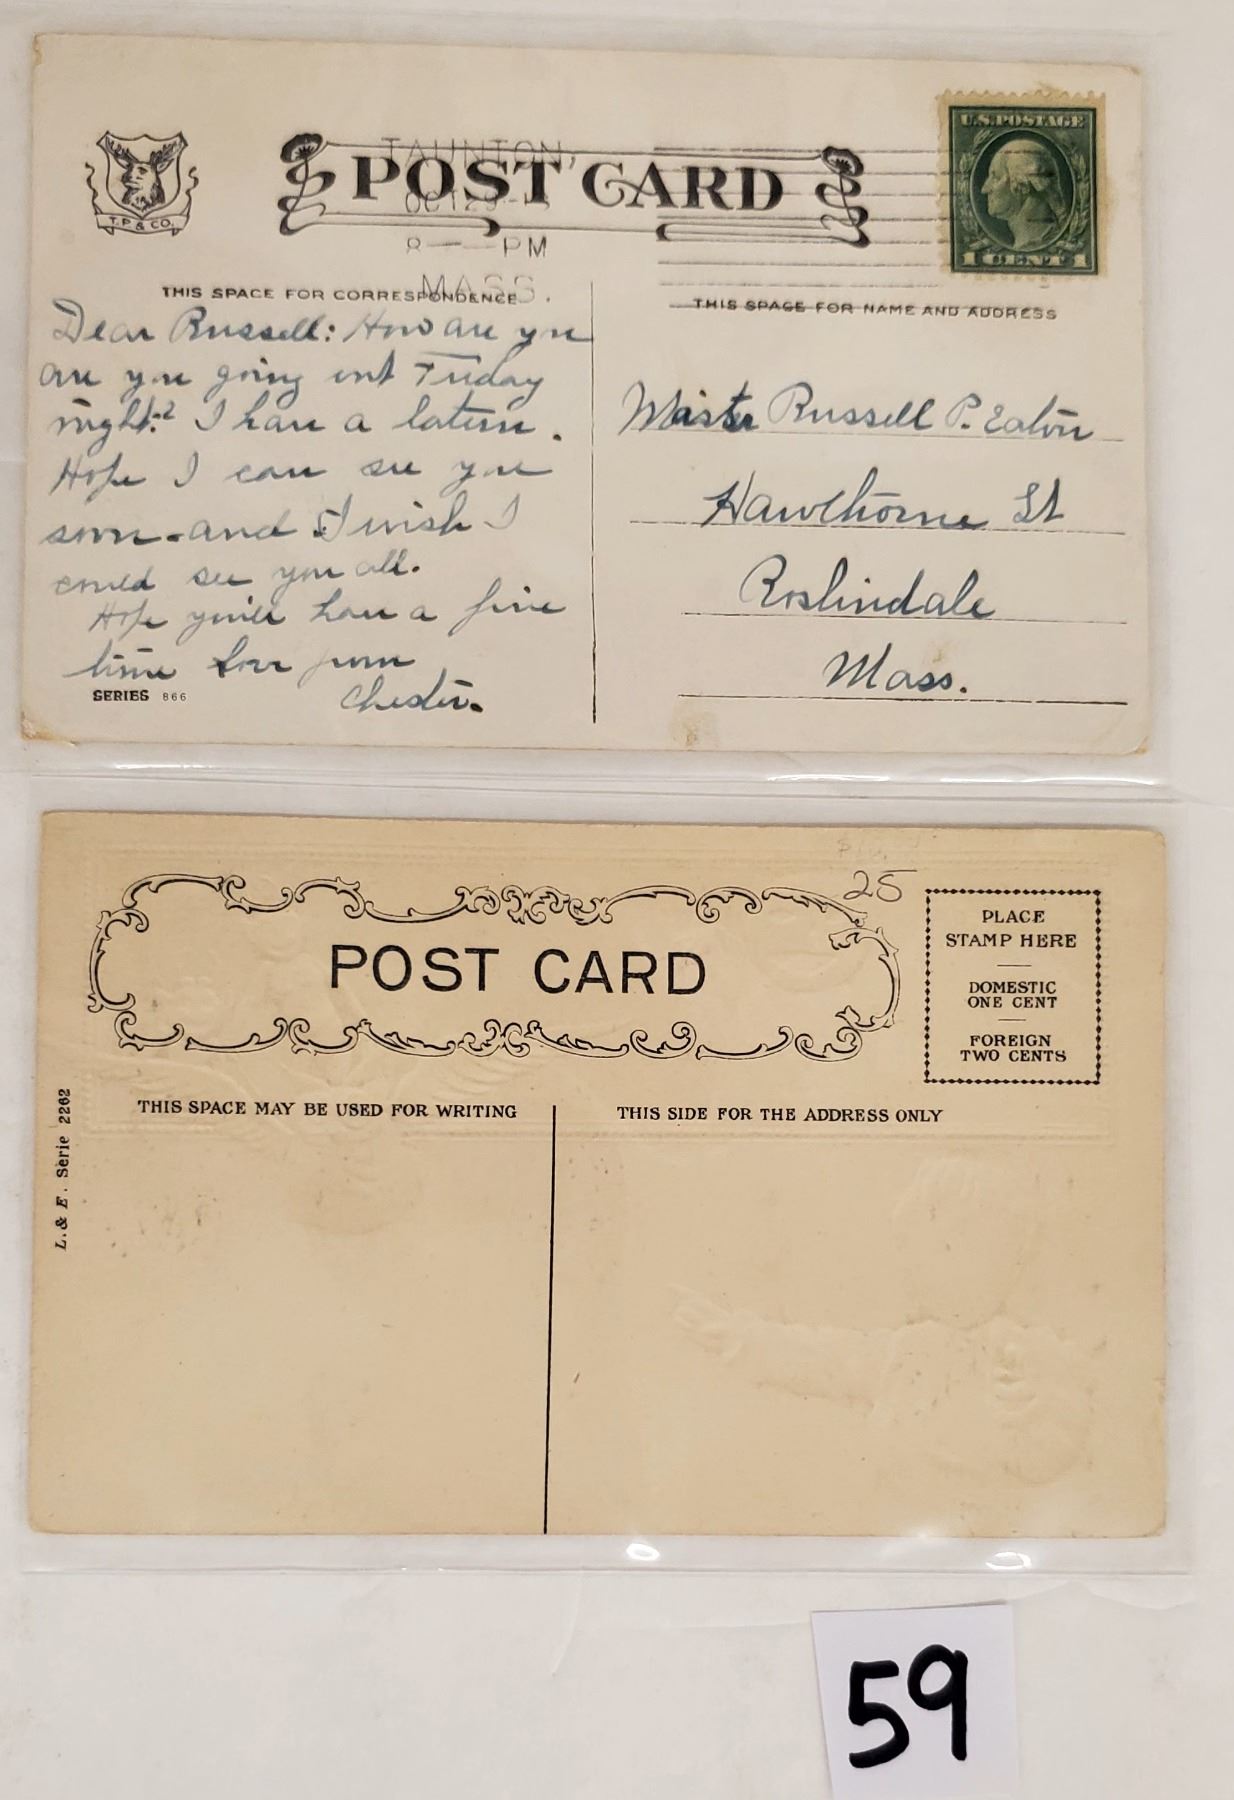 T. P. & CO.
POST CARD
TAUNTON,
OCT 29
8 — PM
MASS.
U.S. POSTAGE
1 CENT 1
THIS SPACE FOR CORRESPONDENCE
THIS SPACE FOR NAME AND ADDRESS
Dear Russell: How are you
are you going out Friday
night? I have a latern.
Hope I can see you
soon - and I wish I
could see you all.
Hope you'll have a fine
time Love from
Chester.
SERIES 866
Master Russell P. Eaton
Hawthorne St
Roslindale
Mass.
25
POST CARD
PLACE
STAMP HERE
DOMESTIC
ONE CENT
FOREIGN
TWO CENTS
THIS SPACE MAY BE USED FOR WRITING
THIS SIDE FOR THE ADDRESS ONLY
L. & E. Serie 2262
59